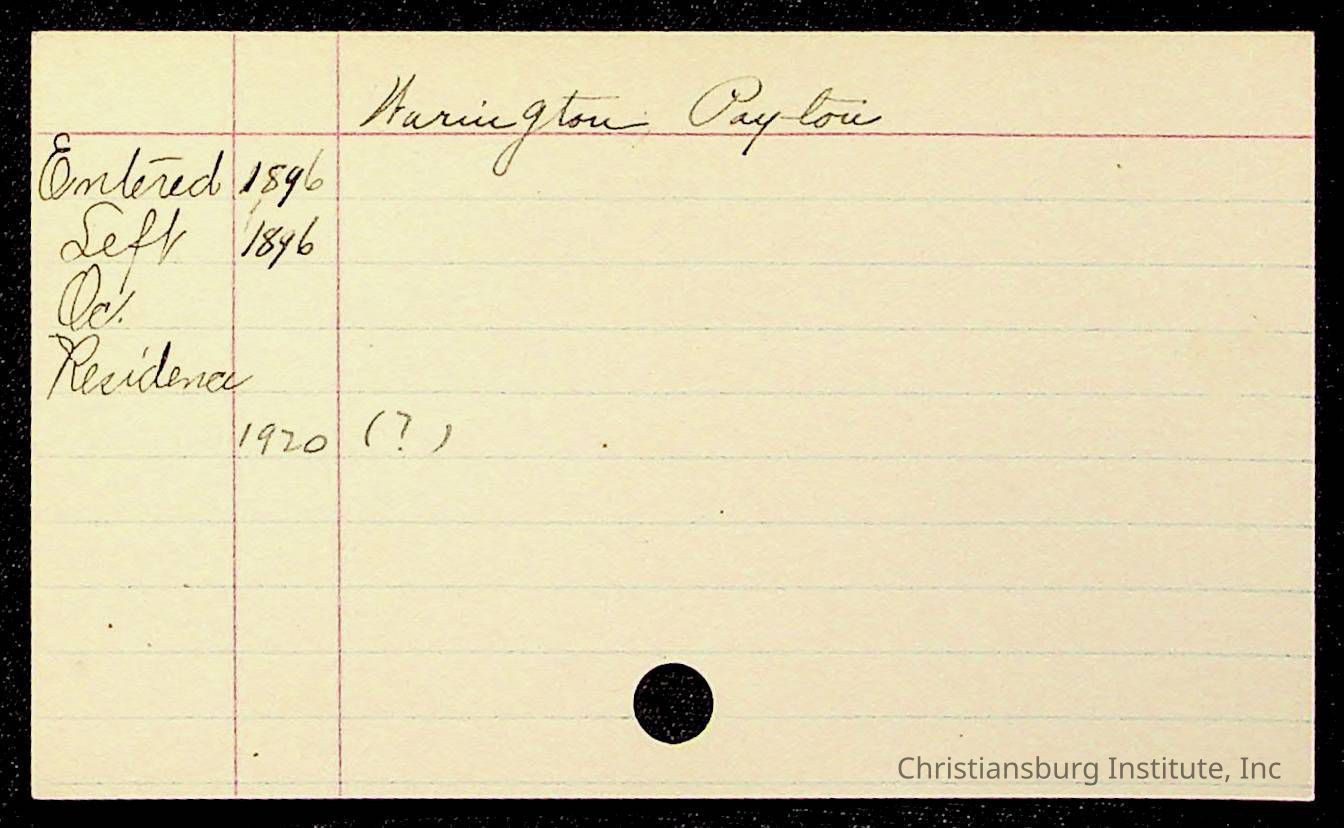 Harrington, Payton
Entered 1896
Left 1896
Oc.
Residence
1920 (?)
Christiansburg Institute, Inc